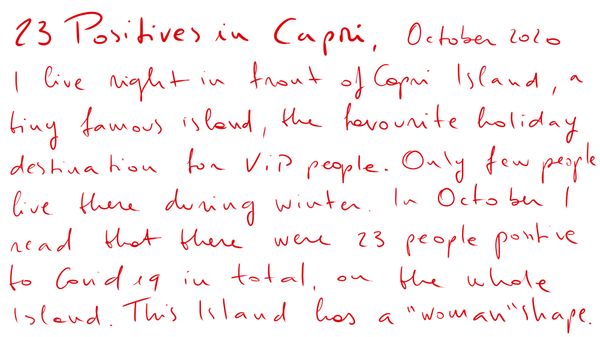 23 Positives in Capri, October 2020
I live right in front of Capri Island, a
tiny famous island, the favourite holiday
destination for ViP people. Only few people
live there during winter. In October I
read that there were 23 people positive
to Covid19 in total, on the whole
Island. This Island has a "woman" shape.